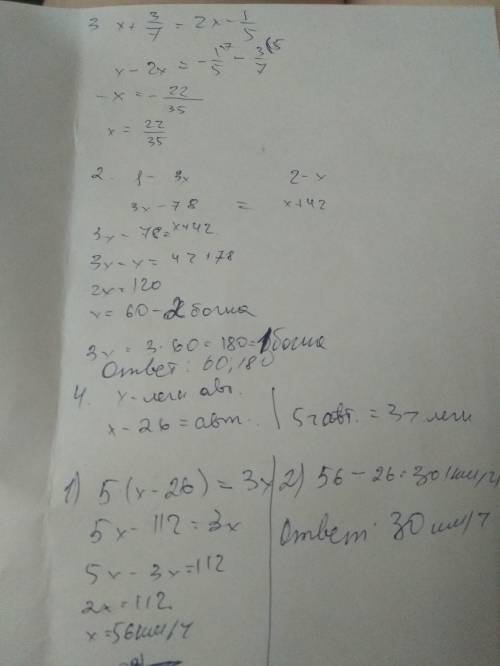 3 x + 3/7 = 2x - 1/5
x - 2x = - 1/5 ⁷ - 3/7 ⁵
- x = - 22/35
x = 22/35
2. 1 - 3x 2 - x
3x - 78 = x + 42
3x - 78 = x + 42
3x - x = 42 + 78
2x = 120
x = 60 - 2 бочка
3x = 3 · 60 = 180 = 1 бочка
Ответ: 60; 180
4. x - легк авт.
x - 26 = авт. 5ч авт. = 3ч легк
1) 5(x - 26) = 3x
5x - 112 = 3x
5x - 3x = 112
2x = 112
x = 56 км/ч
2) 56 - 26 = 30 (км/ч)
Ответ: 30 км/ч